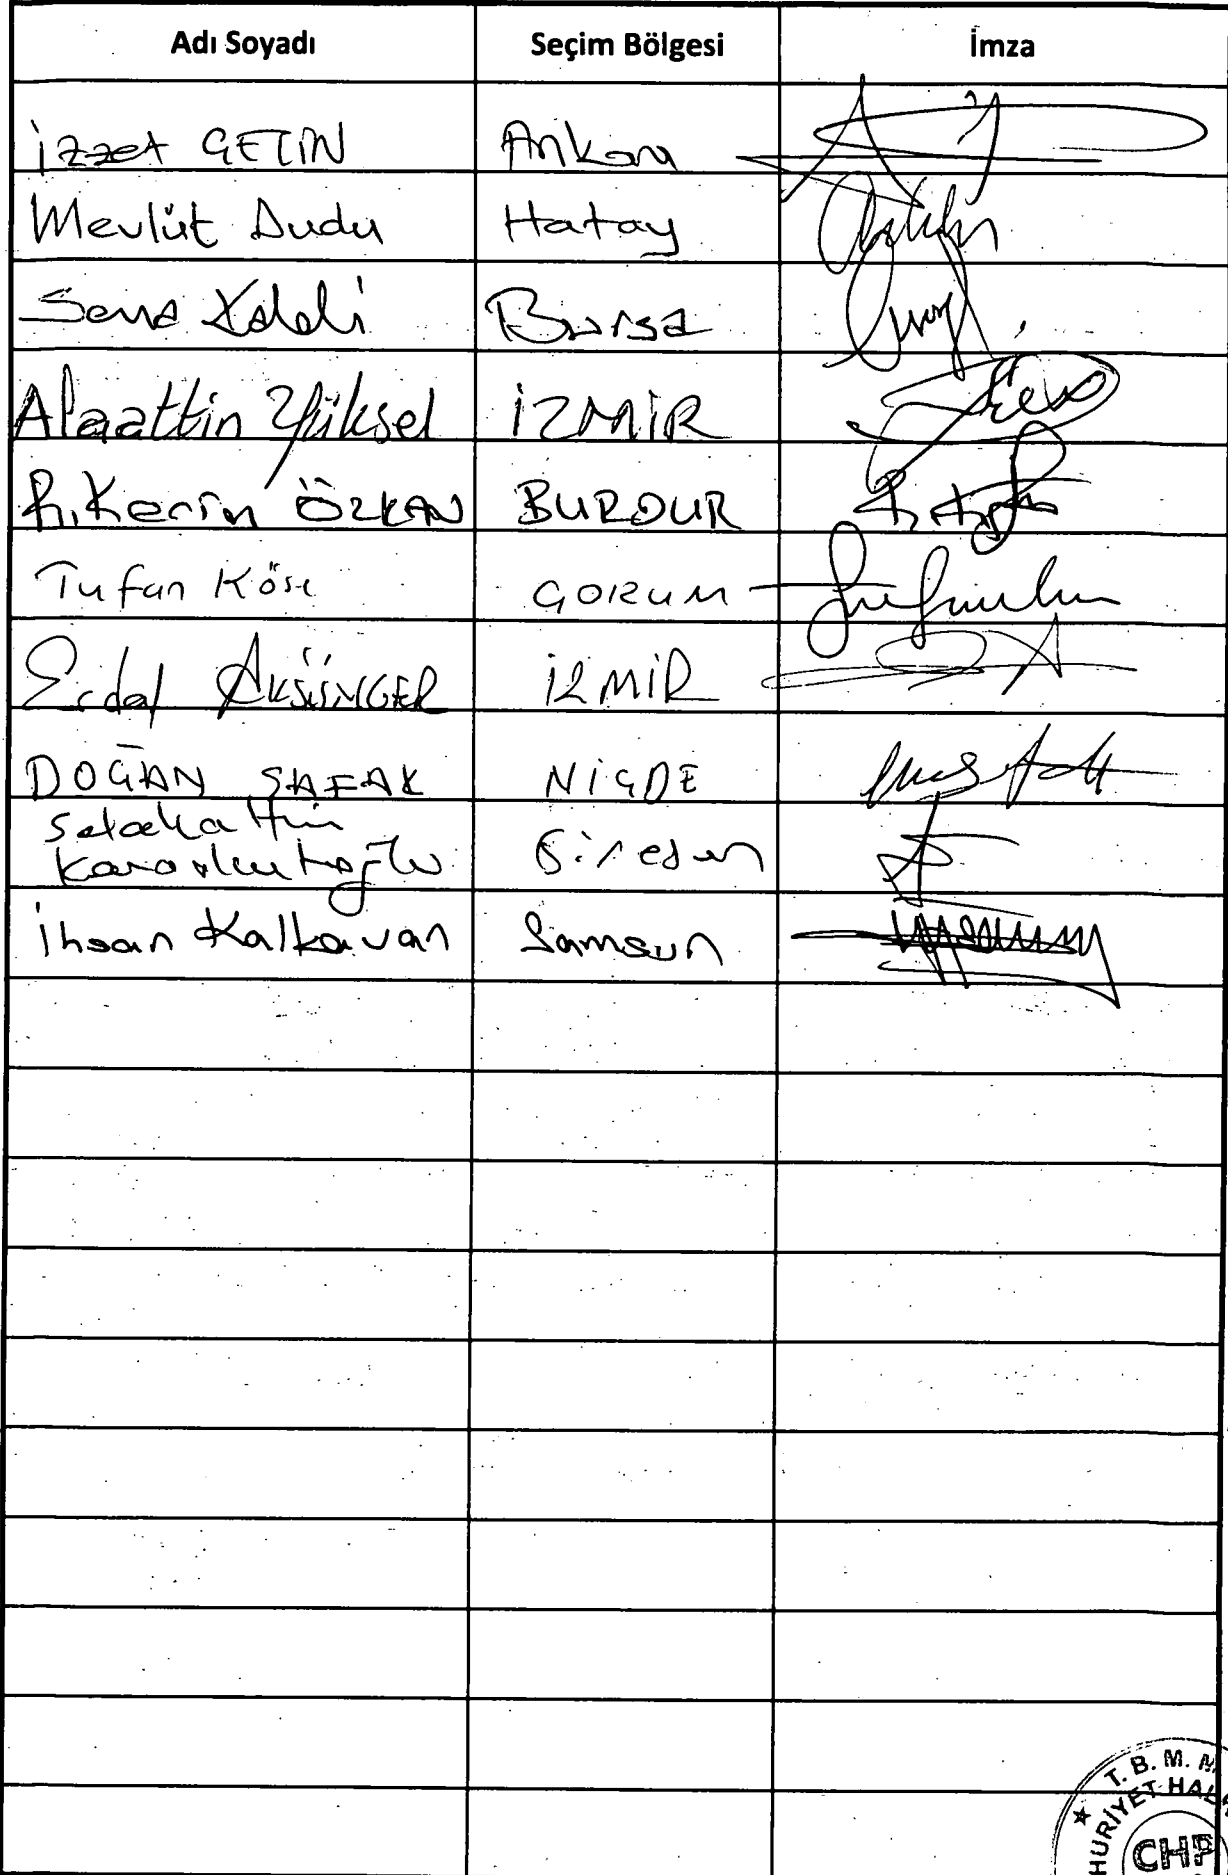 Adı Soyadı Seçim Bölgesi İmza
İzzet ÇETİN Ankara
Mevlüt Dudu Hatay
Sena Kaleli Bursa
Alaattin Yüksel İZMİR
R. Kerim ÖZKAN BURDUR
Tufan Köse ÇORUM
Erdal AKSÜNGER İZMİR
DOĞAN ŞAFAK NİĞDE
Selahattin
Karaahmetoğlu Giresun
İhsan Kalkavan Samsun
T. B. M. M
HURİYET HAL
CHP